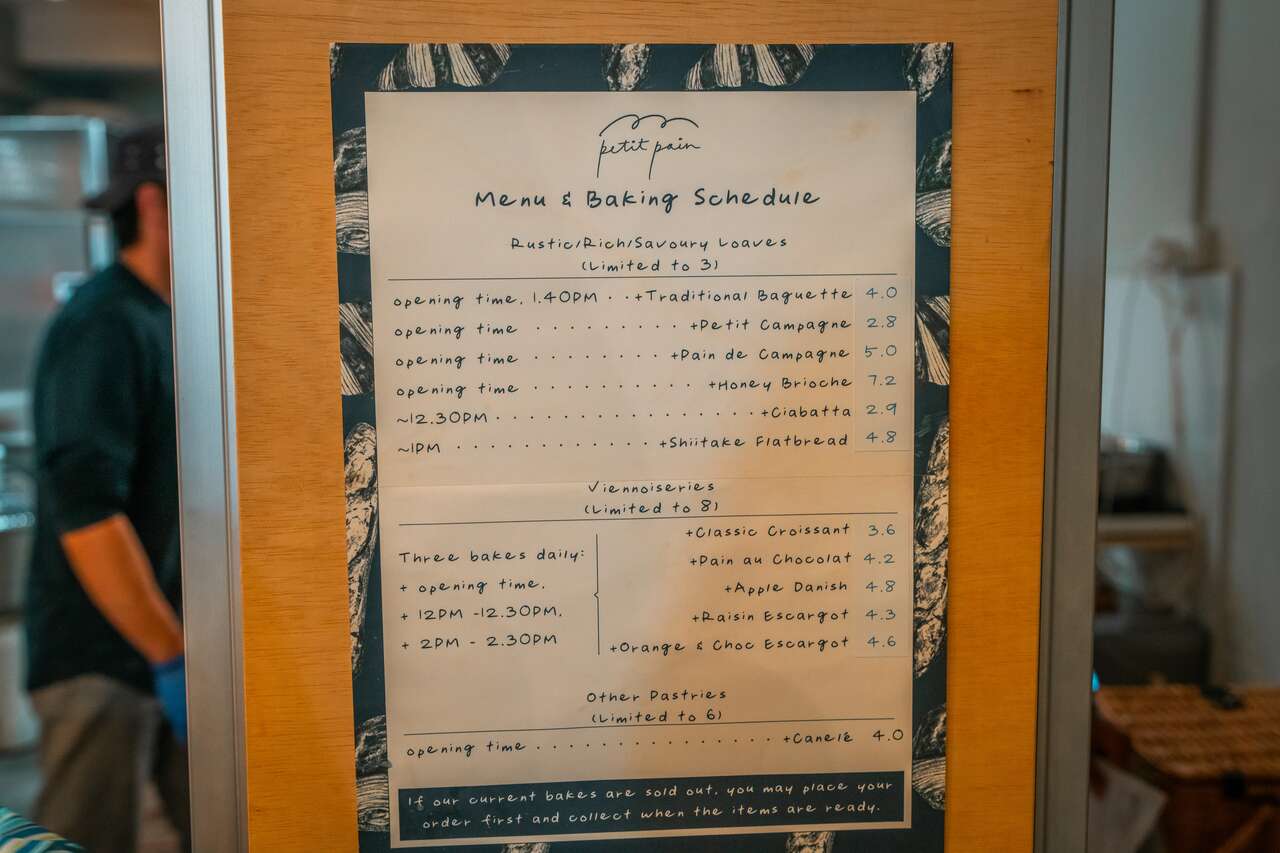 petit pain
Menu & Baking Schedule
Rustic/Rich/Savoury Loaves
(Limited to 3)
opening time, 1.40PM . . +Traditional Baguette 4.0
opening time . . . . . . . . . +Petit Campagne 2.8
opening time . . . . . . . . +Pain de Campagne 5.0
opening time . . . . . . . . . . +Honey Brioche 7.2
~12.30PM . . . . . . . . . . . . . . . . . +Ciabatta 2.9
~1PM . . . . . . . . . . . . . +Shiitake Flatbread 4.8
Viennoiseries
(Limited to 8)
Three bakes daily:
+ opening time,
+ 12PM -12.30PM,
+ 2PM - 2.30PM
+Classic Croissant 3.6
+Pain au Chocolat 4.2
+Apple Danish 4.8
+Raisin Escargot 4.3
+Orange & Choc Escargot 4.6
Other Pastries
(Limited to 6)
opening time . . . . . . . . . . . . . . . +Canelé 4.0
If our current bakes are sold out, you may place your
order first and collect when the items are ready.